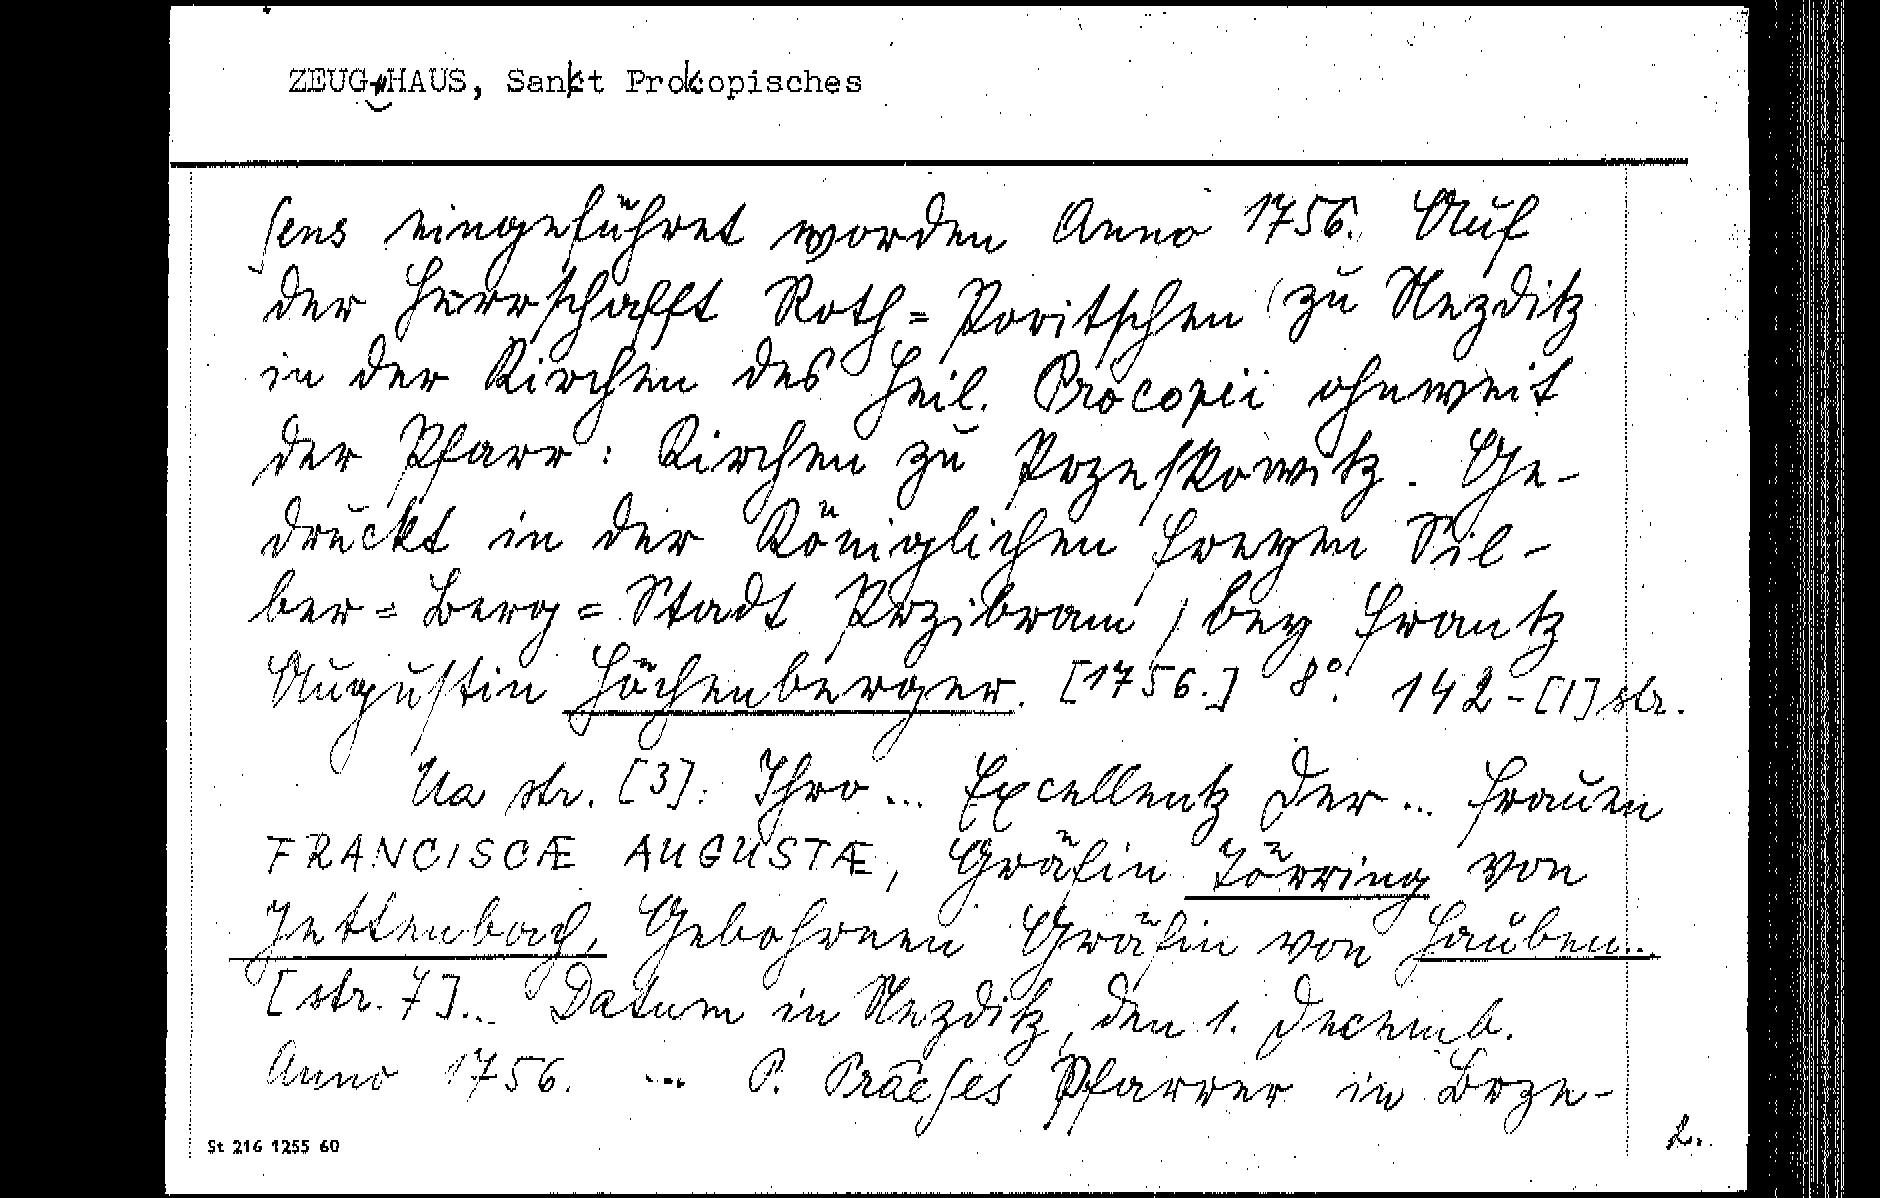 ZEUG-HAUS, Sankt Prokopisches
sens eingeführet worden Anno 1756. Auf
der Herrschafft Roth= Poritschen (zu Nezditz
in der Kirchen des Heil. Procopii ohnweit
der Pfarr: Kirchen zu Przeskowitz. Ge-
druckt in der Königlichen freyen Sil-
ber= Berg= Stadt Przibram / bey Frantz
Augustin Höchenberger. [1756.] 8°. 142-[1] str.
Na str. [3]: Ihro... Excellentz Der... Frauen
FRANCISCÆ AUGUSTÆ, Gräfin Törring von
Jettenbach, Gebohrnen Gräfin von Hauben...
[str. 7]... Datum in Nezditz, den 1. Decemb.
Anno 1756. ... P. Praeses Pfarrer in Brze-
St 216 1255 60
2.